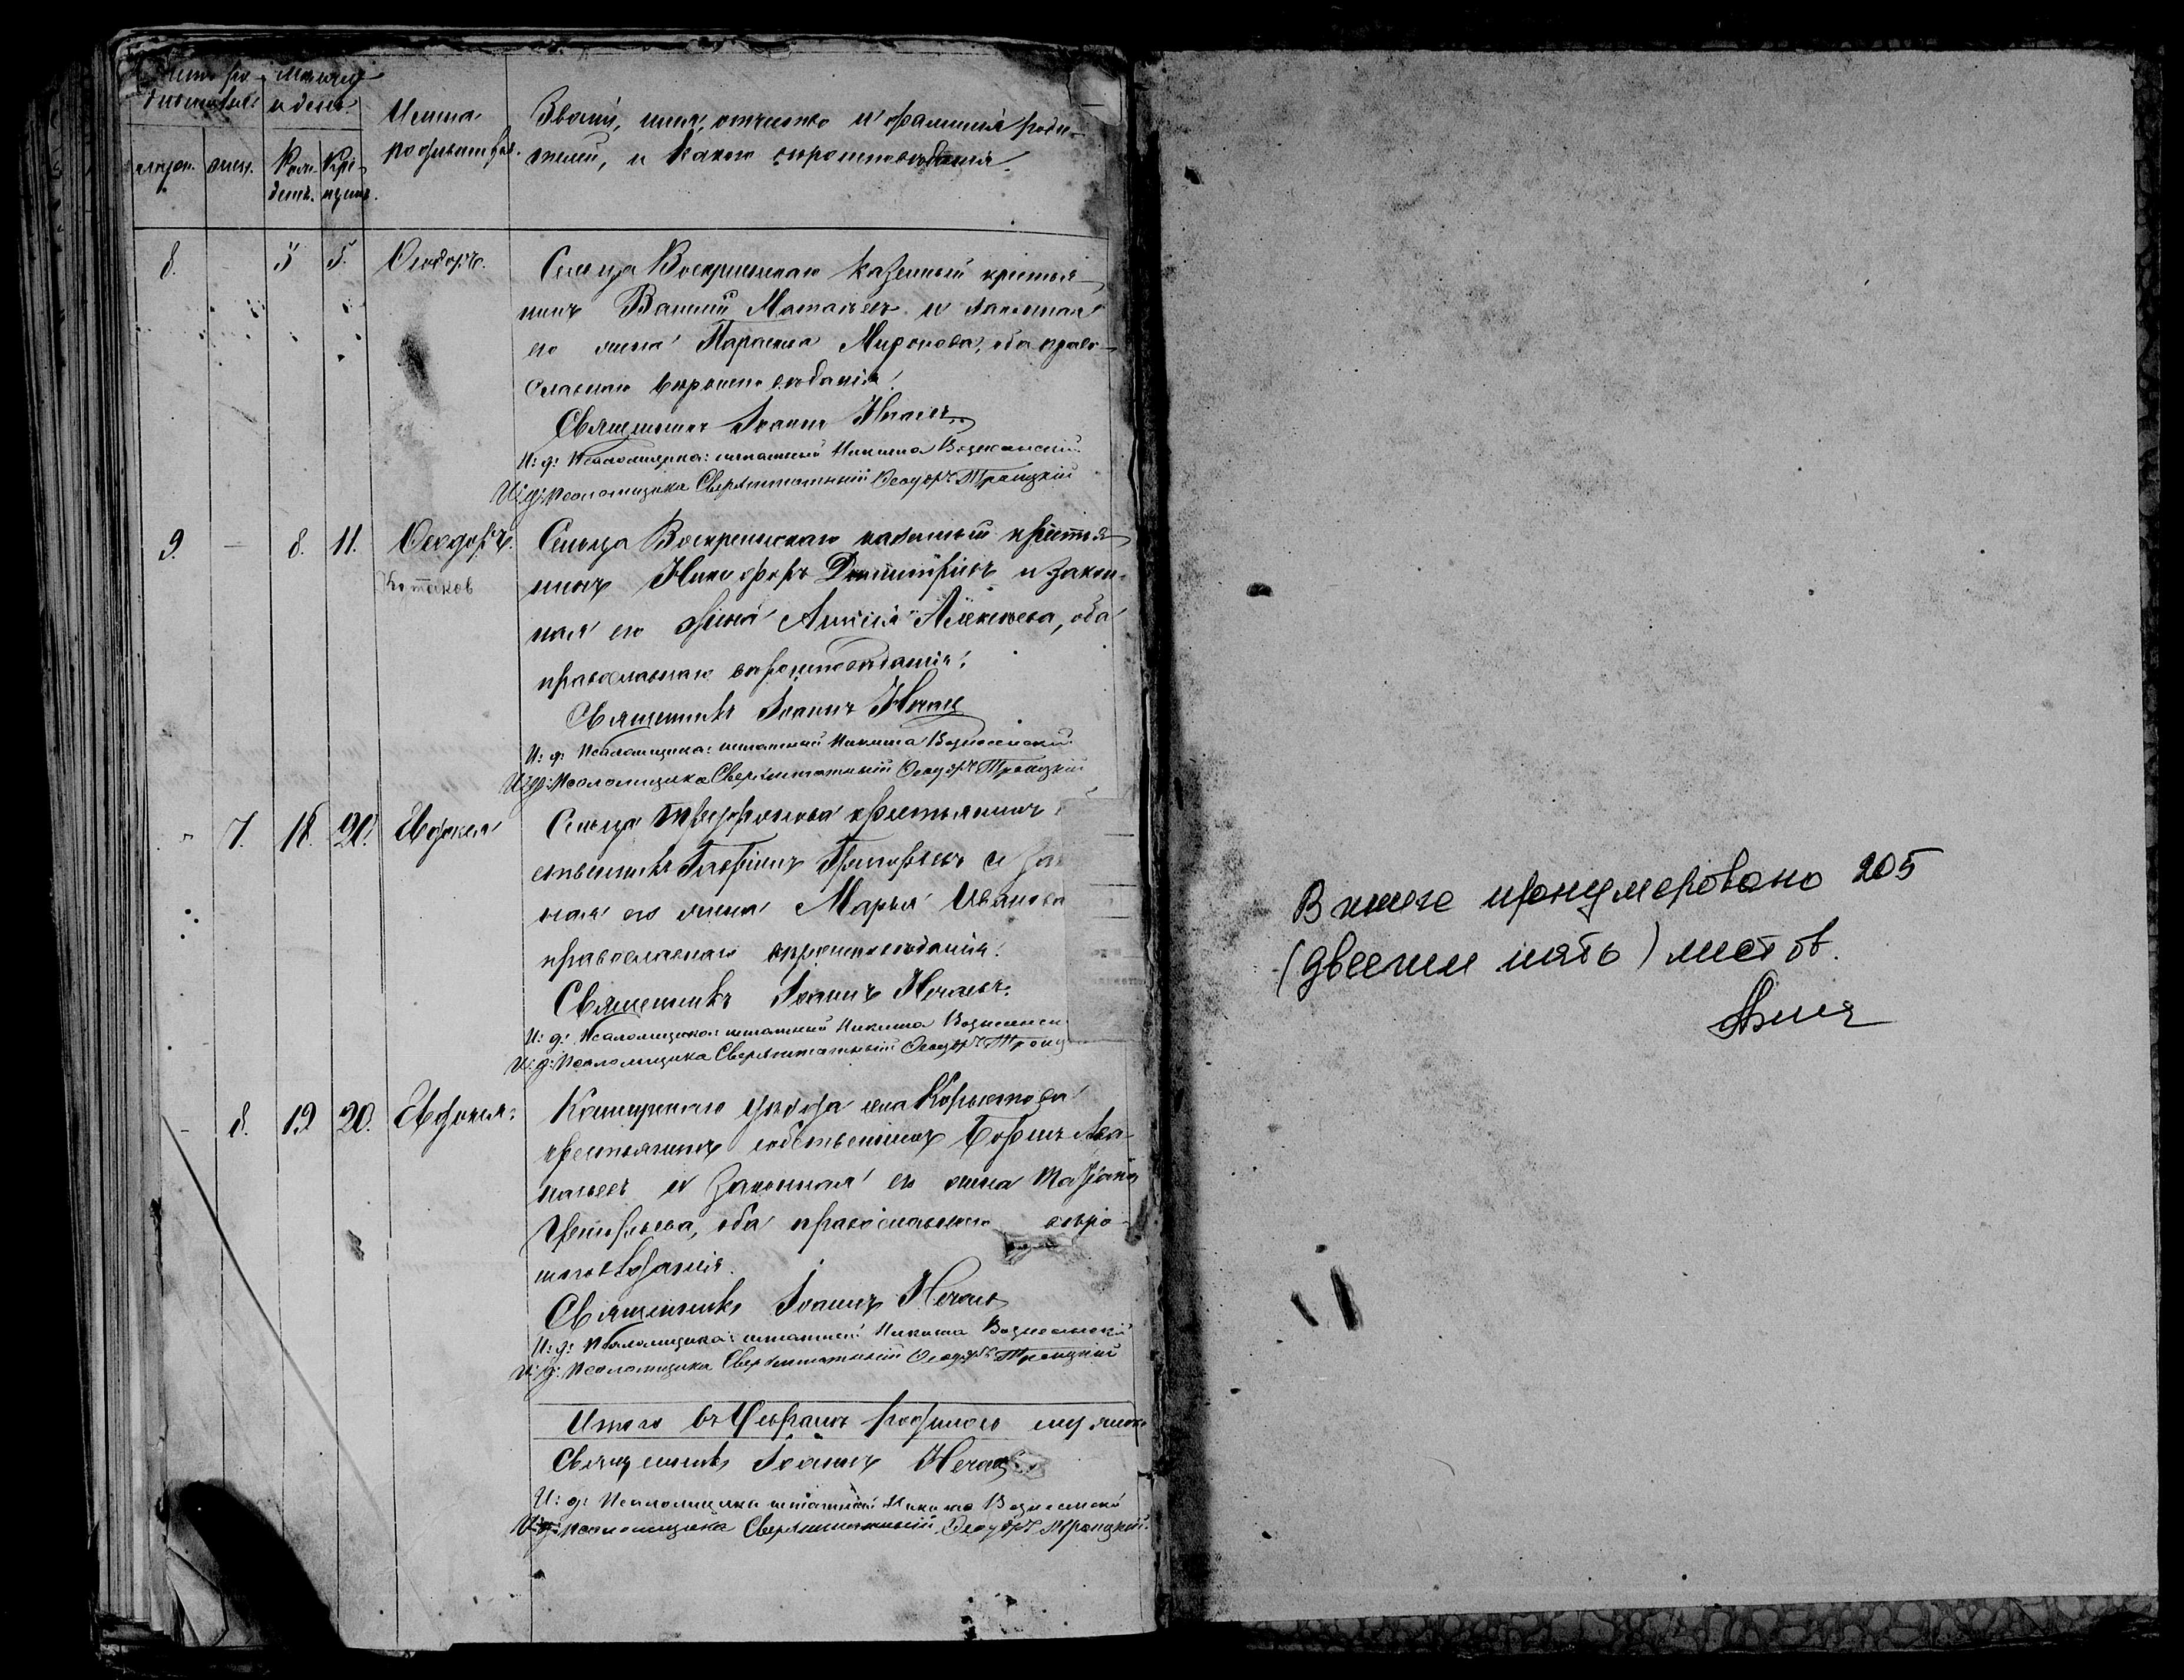 Счетъ ро- Мѣсяцъ
дившихся и день. Имена Званіе, имя, отчество и фамилія роди-
родившихся. телей, и какого вѣроисповѣданія.
мужеск. женск. Рож- Кре-
денія. щенія.
8. 3 5. Ѳеодоръ. Сельца Воскресенскаго казенный крестья-
нинъ Василий Матвѣевъ и законная
его жена Параскева Миронова, оба право-
славнаго вѣроисповѣданія.
Священникъ Іоаннъ Нечаевъ
И: д: Псаломщика: штатный Никита Вознесенскій
И: д: Псаломщика Сверхштатный Ѳеодоръ Троицкій
9. — 8. 11. Ѳеодоръ. Сельца Воскресенскаго казенный крестья-
Котаков нинъ Никифоръ Димитріевъ и закон-
ная его жена Анисія Алексѣева, оба
православнаго вѣроисповѣданія.
Священникъ Іоаннъ Нечаевъ
И: д: Псаломщика: штатный Никита Вознесенскій
И: д: Псаломщика Сверхштатный Ѳеодоръ Троицкій
7. 18. 20. Евдокія Сельца крестьянинъ
ственникъ Гавріилъ Григорьевъ и за
ная его жена Марья Иванова
православнаго вѣроисповѣданія.
Священникъ Іоаннъ Нечаевъ.
И: д: Псаломщика: штатный Никита Вознесенск
И: д: Псаломщика Сверхштатный Ѳеодоръ Троиц
- 8. 19 20. Евдокія. Каширскаго уѣзда села
крестьянинъ собственникъ Борисъ Аѳа-
насьевъ и законная его жена
Григорьева, оба православнаго вѣро-
исповѣданія.
Священникъ Іоаннъ Нечаевъ
И: д: Псаломщика: штатный Никита Вознесенскій
И: д: Псаломщика Сверхштатный Ѳеодоръ Троицкій
Итого въ Февралѣ родилось
Священникъ Іоаннъ Нечаевъ
И: д: Псаломщика штатный Никита Вознесенскій
И: д: Псаломщика Сверхштатный Ѳеодоръ Троицкій.
В книге пронумеровано 205
(двести пять) листов.